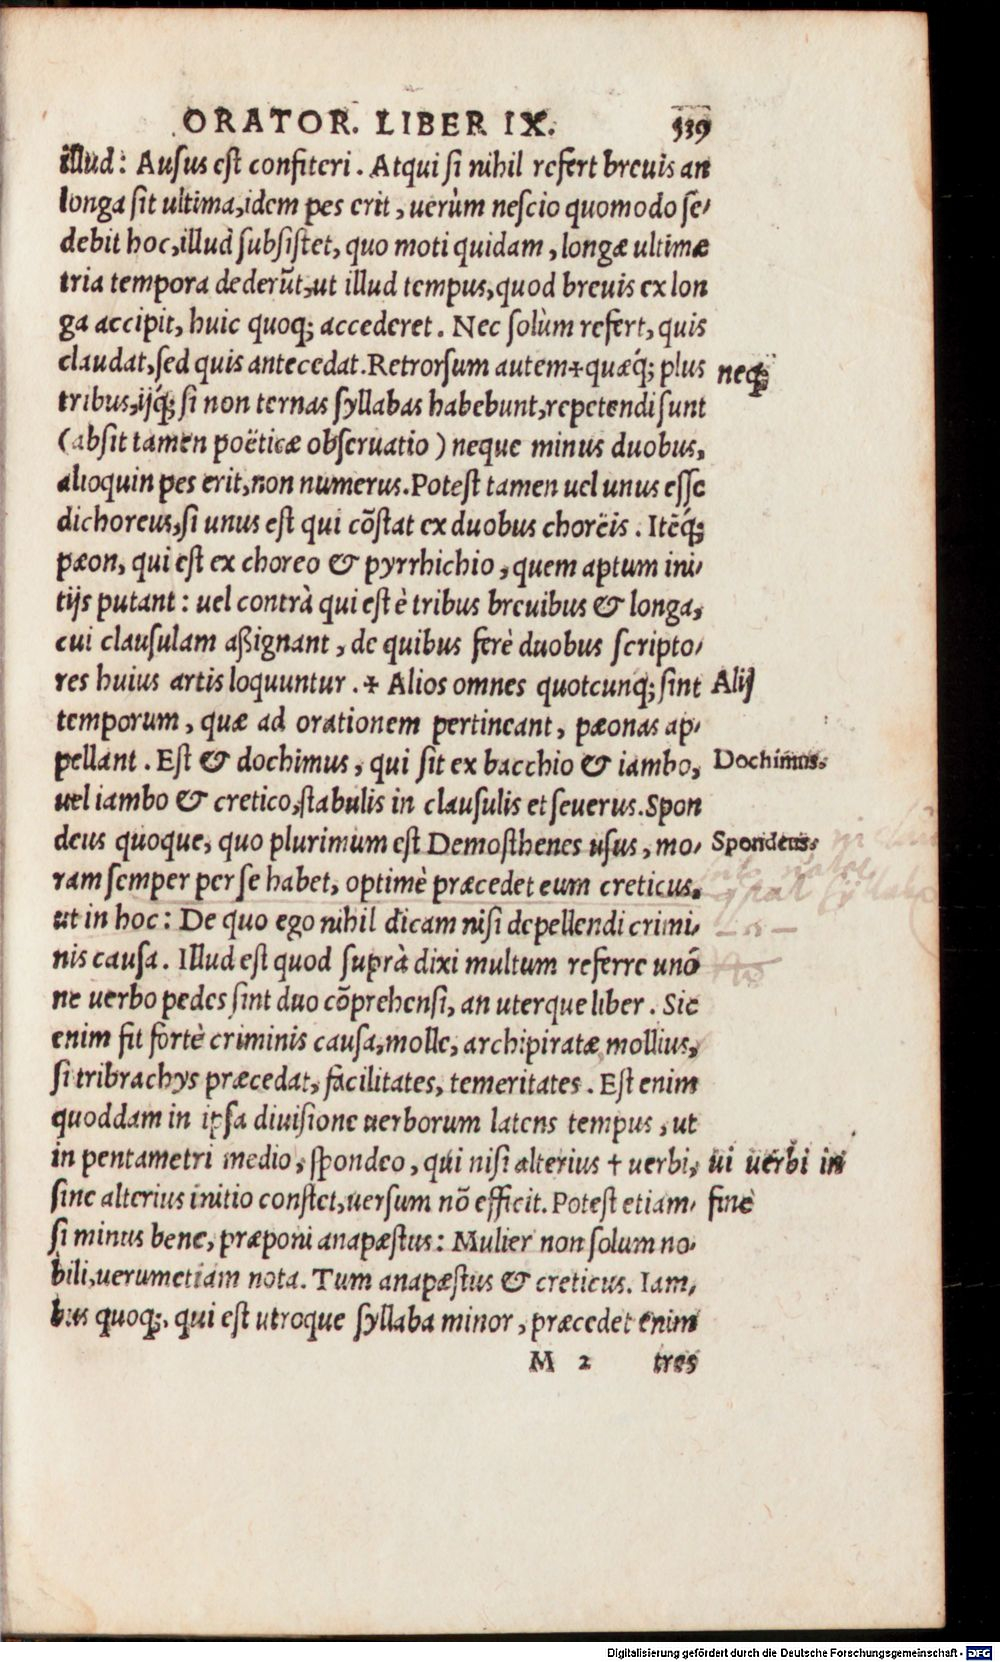 ORATOR. LIBER IX. 539
illud: Ausus est confiteri. Atqui si nihil refert breuis an
longa sit ultima, idem pes erit, uerùm nescio quomodo se-
debit hoc, illud subsistet, quo moti quidam, longæ ultimæ
tria tempora dederũt, ut illud tempus, quod breuis ex lon
ga accipit, huic quoq; accederet. Nec solùm refert, quis
claudat, sed quis antecedat. Retrorsum autem + quæq́; plus
neq;
tribus, ijq́; si non ternas syllabas habebunt, repetendi sunt
(absit tamen poëticæ obseruatio) neque minus duobus,
alioquin pes erit, non numerus. Potest tamen uel unus esse
dichoreus, si unus est qui cõstat ex duobus chorëis. Itẽq́;
pæon, qui est ex choreo & pyrrhichio, quem aptum ini-
tijs putant: uel contrà qui est è tribus breuibus & longa,
cui clausulam aßignant, de quibus ferè duobus scripto-
res huius artis loquuntur. + Alios omnes quotcunq; sint
Alij
temporum, quæ ad orationem pertineant, pæonas ap-
pellant. Est & dochimus, qui sit ex bacchio & iambo,
Dochimus.
uel iambo & cretico, stabulis in clausulis et seuerus. Spon
deus quoque, quo plurimum est Demosthenes usus, mo-
Spondeus.
ram semper per se habet, optimè præcedet eum creticus,
ut in hoc: De quo ego nihil dicam nisi depellendi crimi-
nis causa. Illud est quod suprà dixi multum referre unõ
ne uerbo pedes sint duo cõprehensi, an uterque liber. Sic
enim fit fortè criminis causa, molle, archipiratæ, mollius,
si tribrachys præcedat, facilitates, temeritates. Est enim
quoddam in ipsa diuisione uerborum latens tempus, ut
in pentametri medio, spondeo, qui nisi alterius + uerbi,
ui uerbi in
fine
sine alterius initio constet, uersum nõ efficit. Potest etiam-
si minus bene, præponi anapæstus: Mulier non solum no-
bili, uerumetiam nota. Tum anapæstus & creticus. Iam-
bus quoq;, qui est utroque syllaba minor, præcedet enim
M 2 tres
Digitalisierung gefördert durch die Deutsche Forschungsgemeinschaft - DFG